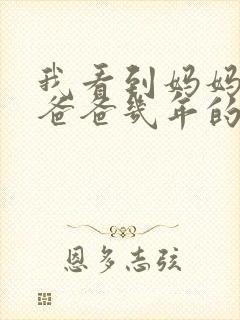 我看到妈妈
爸爸几年的
恩多志弦